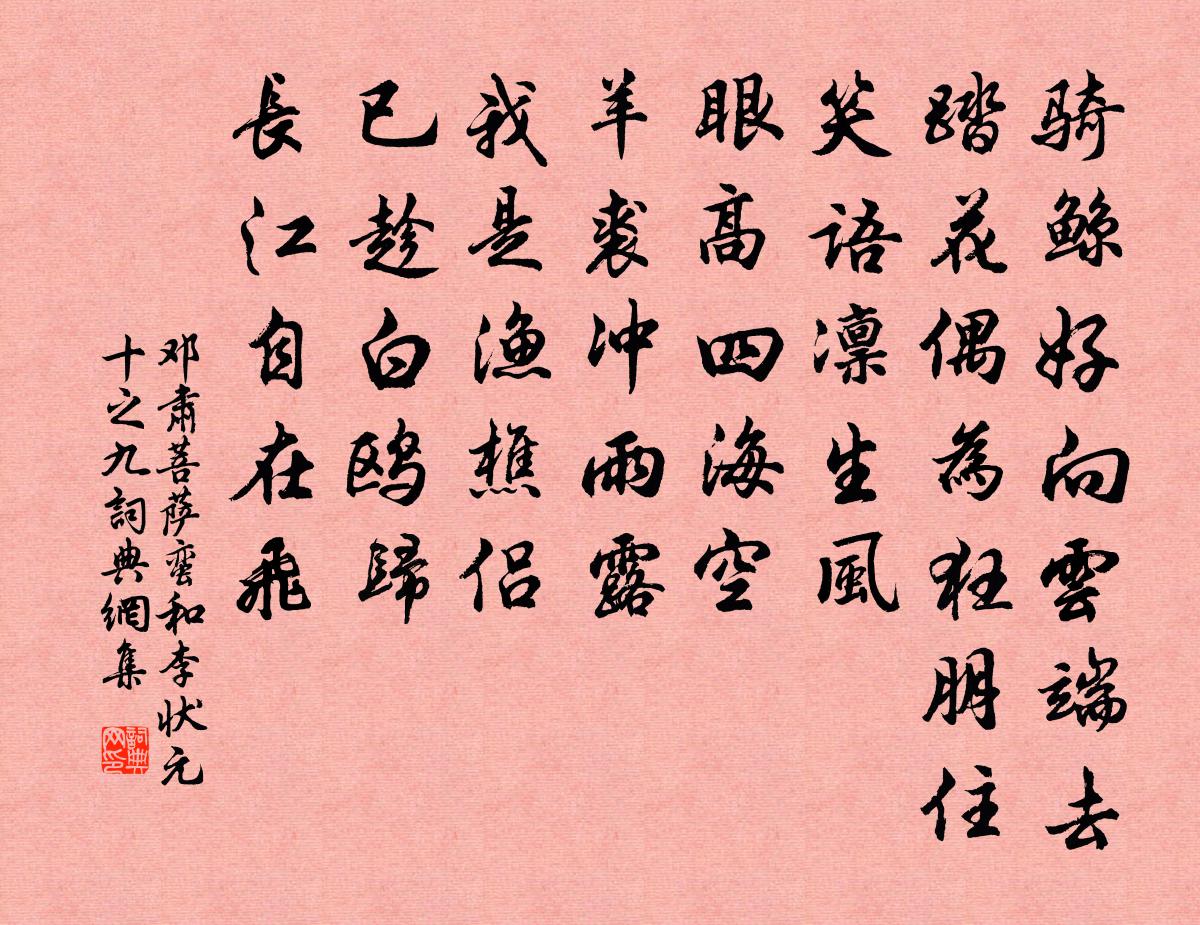 骑鲸好向雲端去
踏花偶為狂朋住
笑語凛生風
眼高四海空
羊裘冲雨露
我是渔樵侣
已趁白鸥歸
長江自在飛
邓肃菩萨蛮和李状元
十之九詞典網集
詞典网印